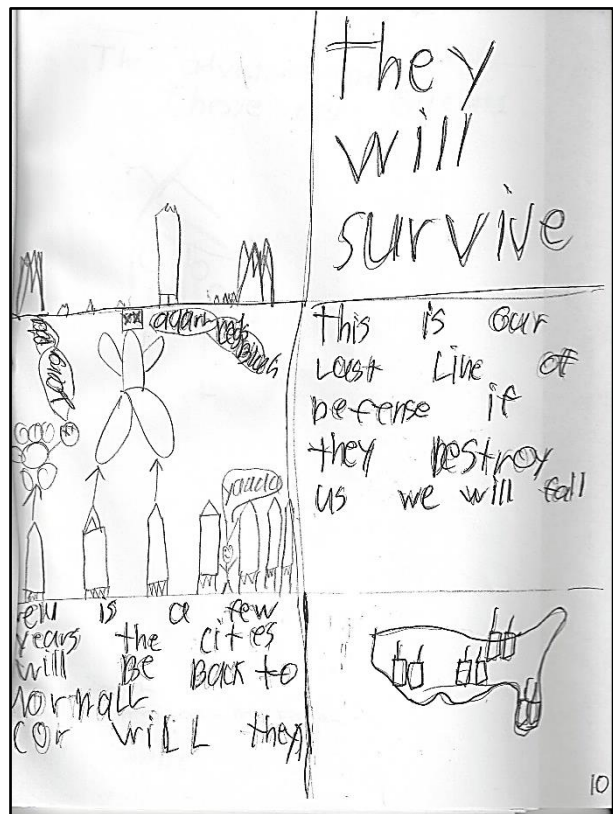 they
will
survive
again
this is our
Last Line of
Defense if
they Destroy
us we will fall
is a few
years the cities
will Be Back to
Normall
cor wiLL they
10